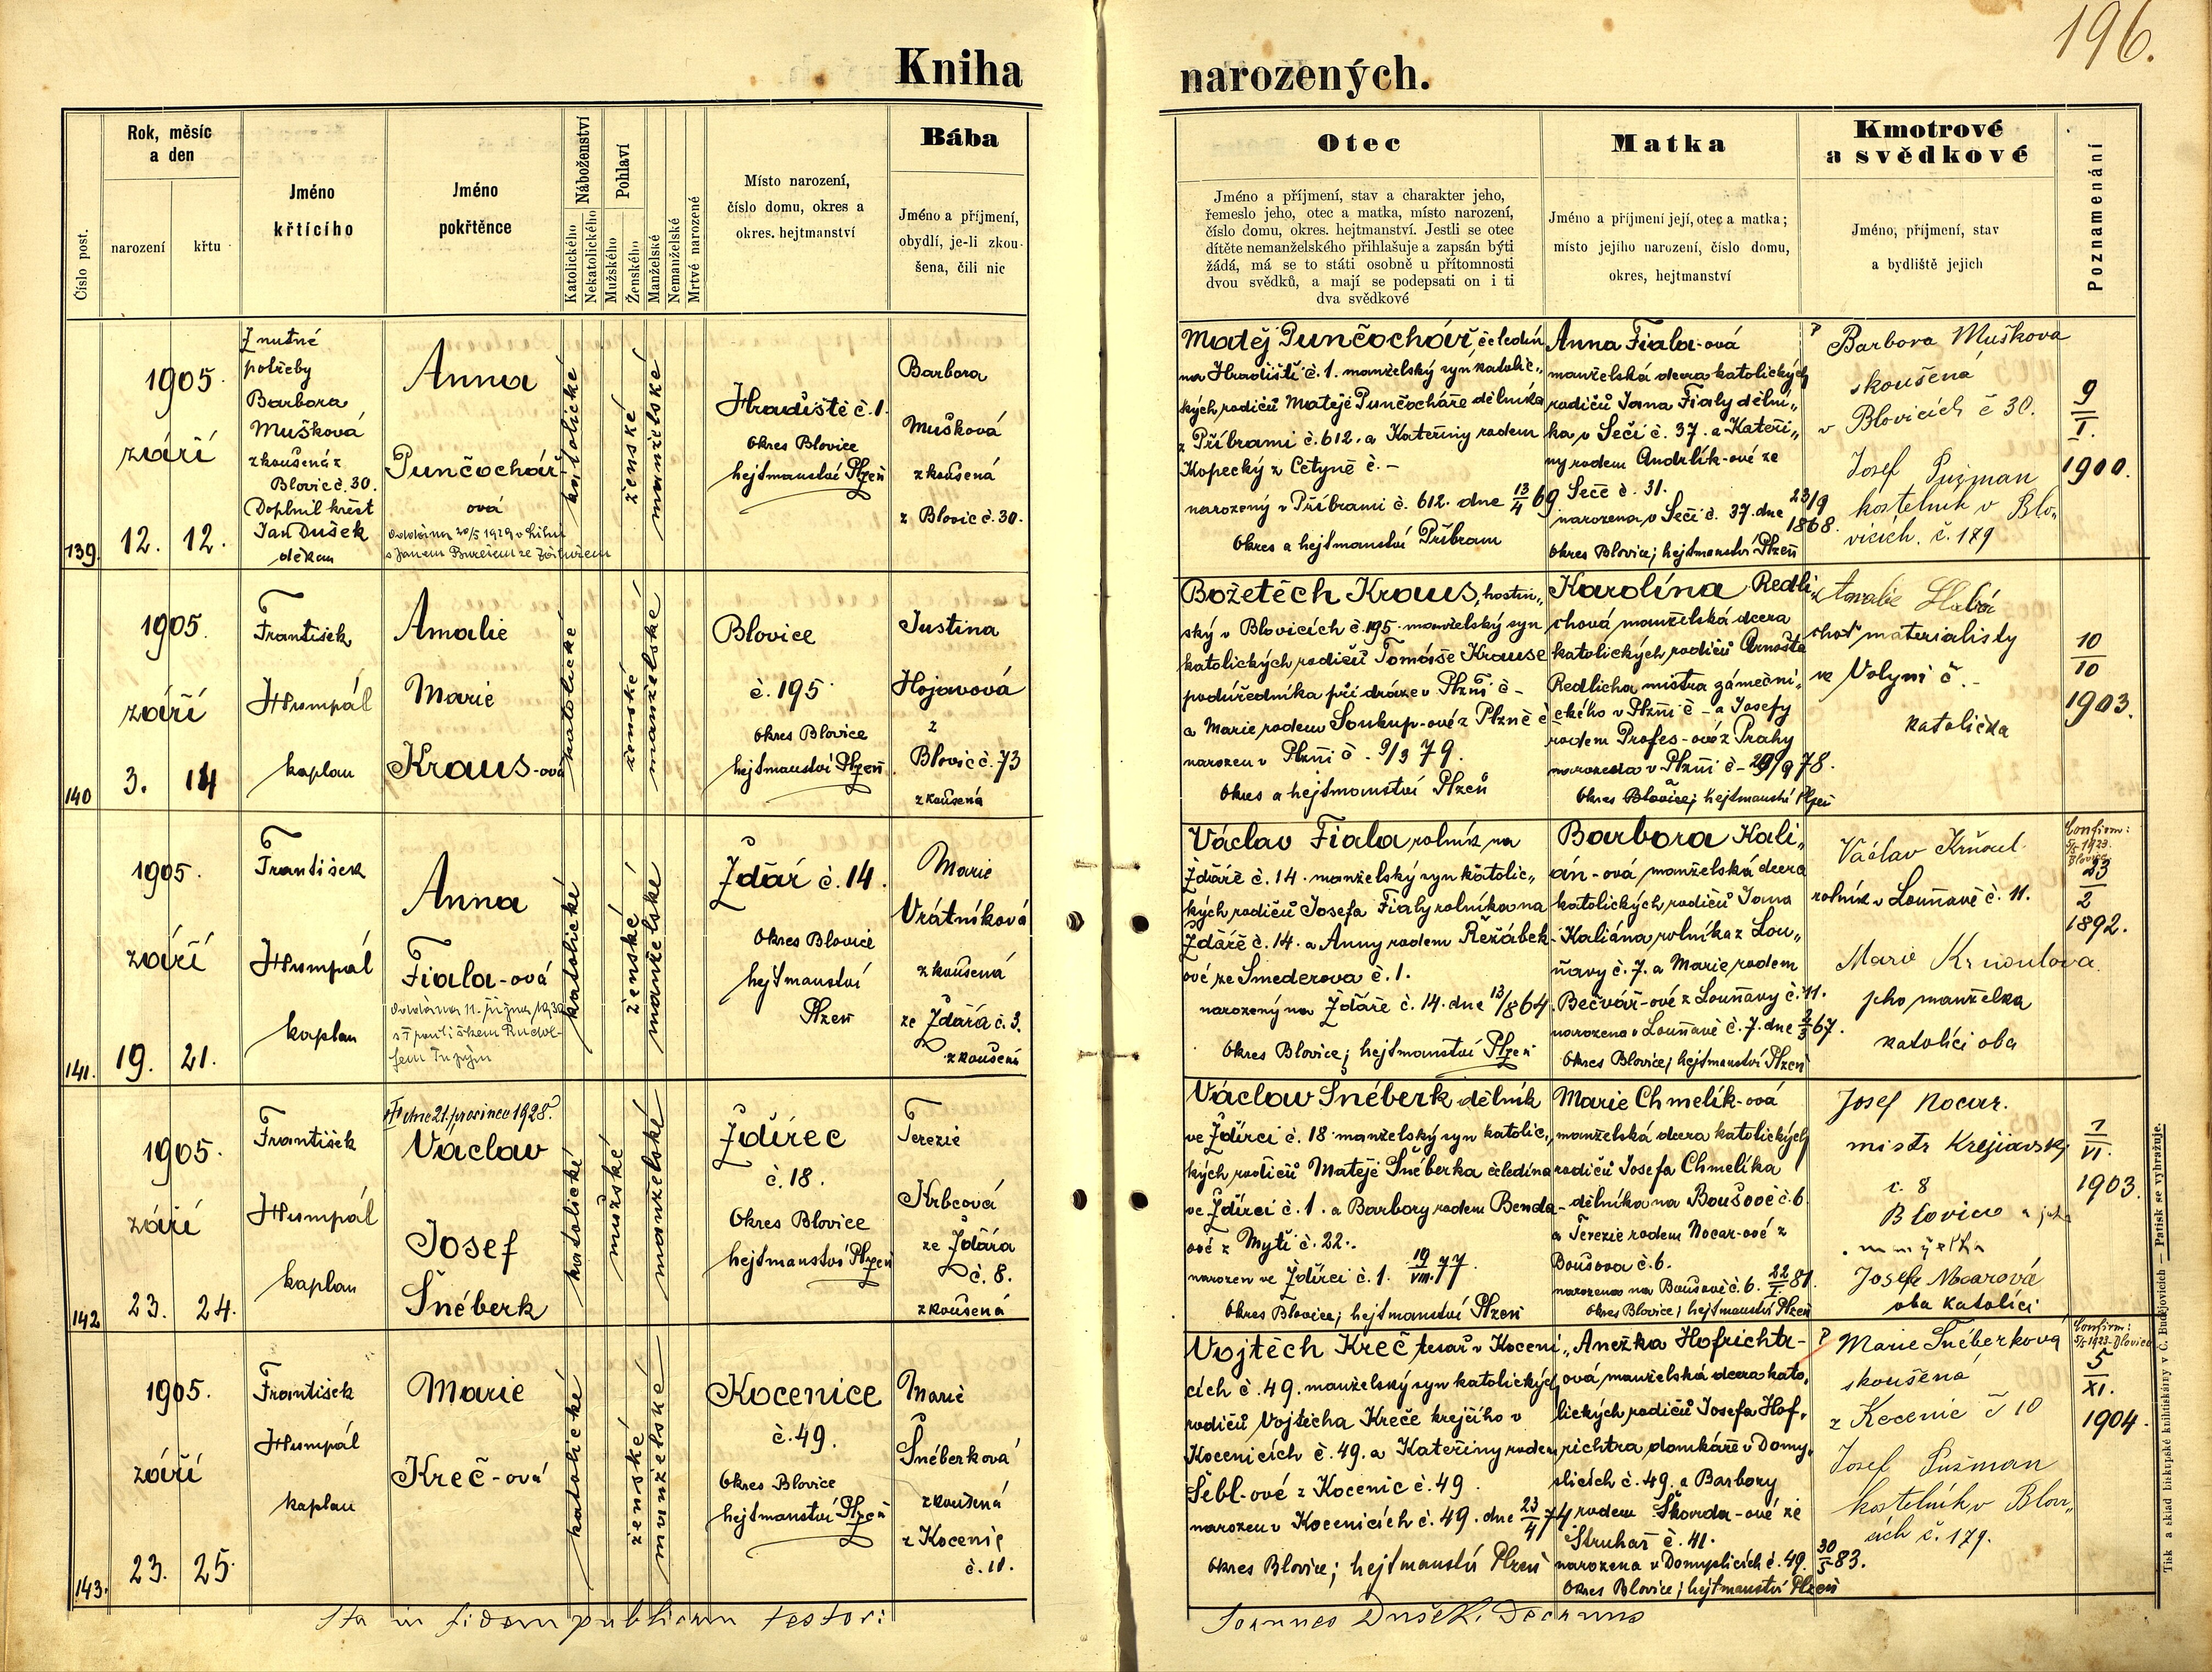 196.
Kniha narozených.
Číslo post.
Rok, měsíc
a den
narození
křtu
Jméno
křtícího
Jméno
pokřtěnce
Náboženství
Katolického
Nekatolického
Pohlaví
Mužského
Ženského
Manželské
Nemanželské
Mrtvě narozené
Místo narození,
číslo domu, okres a
okres. hejtmanství
Bába
Jméno a příjmení,
obydlí, je-li zkou-
šena, čili nic
Otec
Jméno a příjmení, stav a charakter jeho,
řemeslo jeho, otec a matka, místo narození,
číslo domu, okres. hejtmanství. Jestli se otec
dítěte nemanželského přihlašuje a zapsán býti
žádá, má se to státi osobně u přítomnosti
dvou svědků, a mají se podepsati on i ti
dva svědkové
Matka
Jméno a příjmení její, otec a matka;
místo jejího narození, číslo domu,
okres, hejtmanství
Kmotrové
a svědkové
Jméno, příjmení, stav
a bydliště jejich
Poznamenání
139.
1905.
září
12. 12.
Z nutné
potřeby
Barbora
Mušková
zkoušená z
Blovic č. 30.
Doplnil křest
Jan Dušek
děkan
Anna
Punčochář
ová
katolické
ženské
manželské
Hradiště č. 1.
Okres Blovice
hejtmanství Plzeň
Barbora
Mušková
zkoušená
z Blovic č. 30.
Matěj Punčochář, čeledín
na Hradišti č. 1. manželský syn katolic„
kých rodičů Matěje Punčocháře dělníka
z Příbrami č. 612. a Kateřiny rodem
Kopecký z Cetyně č. –
narozený v Příbrami č. 612. dne 13/4 69
Okres a hejtmanství Příbram
Anna Fiala-ová
manželská dcera katolických
rodičů Jana Fialy dělní„
ka v Sečí č. 37. a Kateři„
ny rodem Andrlík-ové ze
Seče č. 31.
narozena v Seči č. 37. dne 23/9
1868.
Okres Blovice; hejtmanství Plzeň
Barbora Mušková
skoušená
v Blovicích č 30.
Josef Pužman
kostelník v Blo„
vicích. č. 179
9
I.
1900.
140
1905.
září
3. 14
František
Humpál
kaplan
Amalie
Marie
Kraus-ová
katolické
ženské
manželské
Blovice
č. 195
Okres Blovice
hejtmanství Plzeň
Justina
Hojavová
z
Blovic č. 73
zkoušená
Božetěch Kraus, hostin„
ský v Blovicích č. 195. manželský syn
katolických rodičů Tomáše Krause
podúředníka při dráze v Plzni č –
a Marie rodem Soukup-ové z Plzně č
narozen v Plzni č. 9/3 79.
Okres a hejtmanství Plzeň
Karolína Redli„
chová manželská dcera
katolických rodičů Arnošta
Redlicha mistra zámečni„
ckého v Plzni č – a Josefy
rodem Profes-ové z Prahy
narozena v Plzni č – 29/9 78.
Okres Blovice; hejtmanství Plzeň
Amalie Slabá
choť materialisty
ve Volyni č. –
katolička
10
10
1903.
141.
1905.
září
19. 21.
František
Humpál
kaplan
Anna
Fiala-ová
katolické
ženské
manželské
Ždár č. 14.
Okres Blovice
hejtmanství
Plzeň
Marie
Vrátníková
zkoušená
ze Ždára č. 3.
zkoušení
Václav Fiala rolník na
Ždáře č. 14. manželský syn katolic„
kých rodičů Josefa Fialy rolníka na
Ždáře č. 14. a Anny rodem Řežábek-
ové ze Smederova č. 1.
narozený na Ždáře č. 14. dne 13/8 64
Okres Blovice; hejtmanství Plzeň
Barbora Kali„
án-ová, manželská dcera
katolických rodičů Jana
Kaliána rolníka z Lou„
ňavy č. 7. a Marie rodem
Bečvář-ové z Louňavy č. 11.
narozena v Louňavě č. 7. dne 2/3 67.
Okres Blovice; hejtmanství Plzeň
Václav Krňoul
rolník v Louňavě č. 11.
Marie Krnoulova
jeho manželka
katolíci oba
Confirm:
5/5 1923.
Blovice
23
2
1892.
142
1905.
září
23. 24.
František
Humpál
kaplan
† dne 21. prosince 1928.
Václav
Josef
Šnéberk
katolické
mužské
manželské
Ždírec
č. 18.
Okres Blovice
hejtmanství Plzeň
Terezie
Krbcová
ze Ždára
č. 8.
zkoušená
Václav Šnéberk dělník
ve Ždírci č. 18 manželský syn katolic„
kých rodičů Matěje Šnéberka čeledína
ve Ždírci č. 1. a Barbory rodem Benda-
ové z Mýtí č. 22..
narozen ve Ždírci č. 1. 19/VIII. 77.
Okres Blovice; hejtmanství Plzeň
Marie Chmelík-ová
manželská dcera katolických
rodičů Josefa Chmelíka
dělníka na Boušově č. 6
a Terezie rodem Nocar-ové z
Boušova č. 6.
narozena na Boušově č. 6. 22/I. 81.
Okres Blovice; hejtmanství Plzeň
Josef Nocar.
mistr Krejčovský
č. 8
Blovice a jeho
manželka
Josefa Nocarová
oba katolíci
1
VI.
1903.
143.
1905.
září
23. 25.
František
Humpál
kaplan
Marie
Kreč-ová
katolické
ženské
manželské
Kocenice
č. 49.
Okres Blovice
hejtmanství Plzeň
Marie
Šnéberková
zkoušená
z Kocenic
č. 10.
Vojtěch Kreč, tesař v Koceni„
cích č. 49. manželský syn katolických
rodičů Vojtěcha Kreče krejčího v
Kocenicích č. 49. a Kateřiny rodem
Šébl-ové z Kocenic č. 49.
narozen v Kocenicích č. 49. dne 23/4 74
Okres Blovice; hejtmanství Plzeň
Anežka Hofrichtr-
ová, manželská dcera kato„
lických rodičů Josefa Hof„
richtra domkáře v Domy„
slicích č. 49. a Barbory
rodem Škovrda-ové ze
Struhař č. 41.
narozena v Domyslicích č. 49. 30/5 83.
Okres Blovice; hejtmanství Plzeň
Marie Šnéberková
skoušená
z Kocenic č 10
Josef Pužman
kostelník v Blov„
icích č. 179.
Confirm:
5/5 1923 Blovice
5
XI.
1904.
Ita in fidem publicam testor:
Joannes Dušek, Decanus
Tisk a sklad biskupské knihtiskárny v Č. Budějovicích — Patisk se vyhražuje.